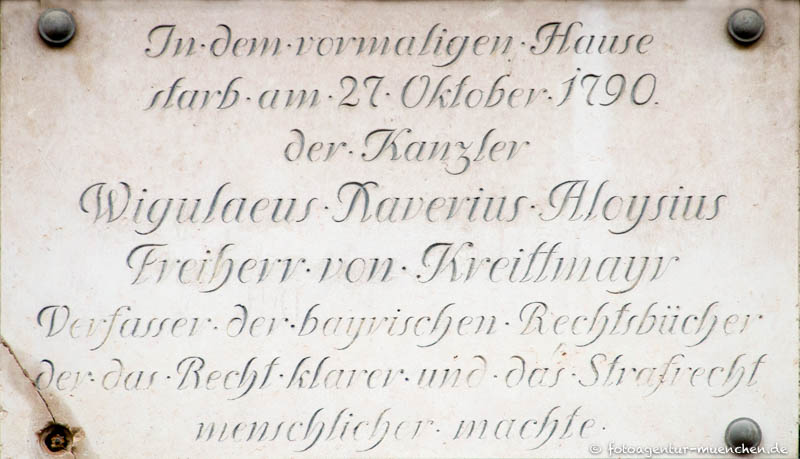 In·dem·vormaligen·Hause
starb·am·27·Oktober·1790.
der·Kanzler
Wigulaeus·Xaverius·Aloysius
Freiherr·von·Kreittmayr
Verfasser·der·bayrischen·Rechtsbücher
der·das·Recht·klarer·und·das·Strafrecht
menschlicher·machte·
© fotoagentur-muenchen.de